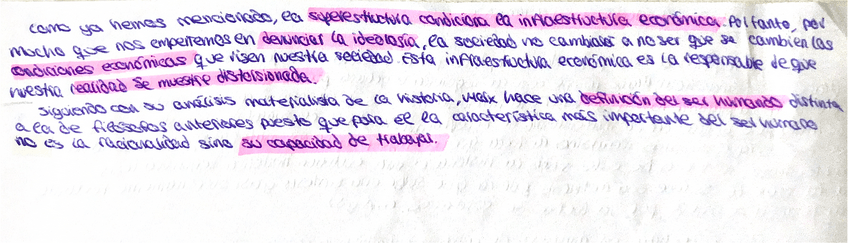 como ya hemos mencionado, la superestructura condiciona la infraestructura económica. Por tanto, por
mucho que nos empeñemos en denunciar la ideología, la sociedad no cambiará a no ser que se cambien las
condiciones económicas que rigen nuestra sociedad. Esta infraestructura económica es la responsable de que
nuestra realidad se muestre distorsionada.
Siguiendo con su análisis materialista de la historia, Marx hace una definición del ser humano distinta
a la de filósofos anteriores puesto que para él la característica más importante del ser humano
no es la racionalidad sino su capacidad de trabajar.